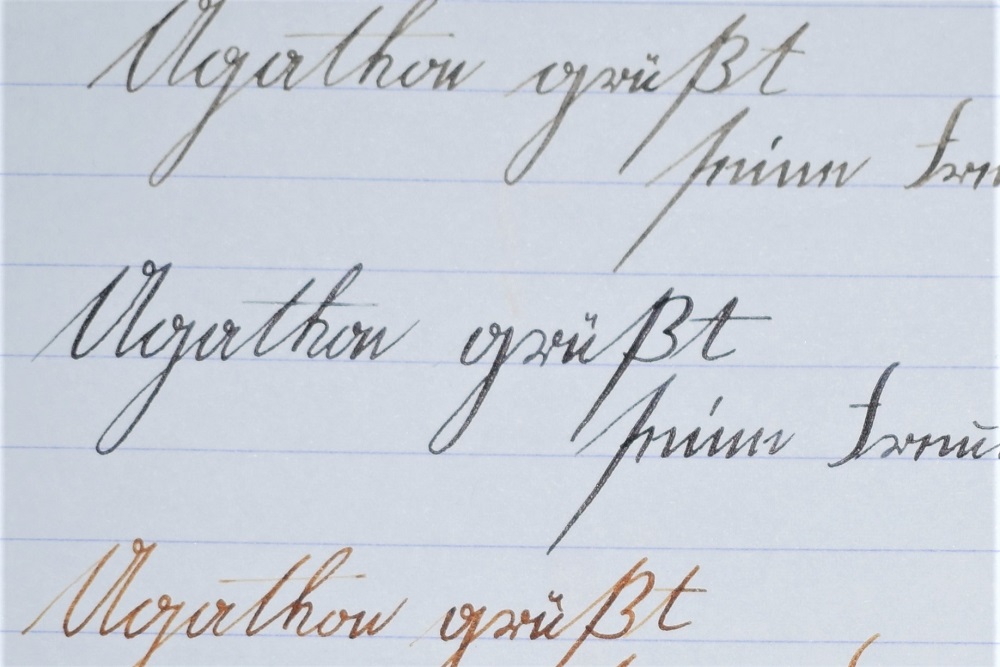 Agathon grüßt
seine Freu
Agathon grüßt
seine Freun
Agathon grüßt